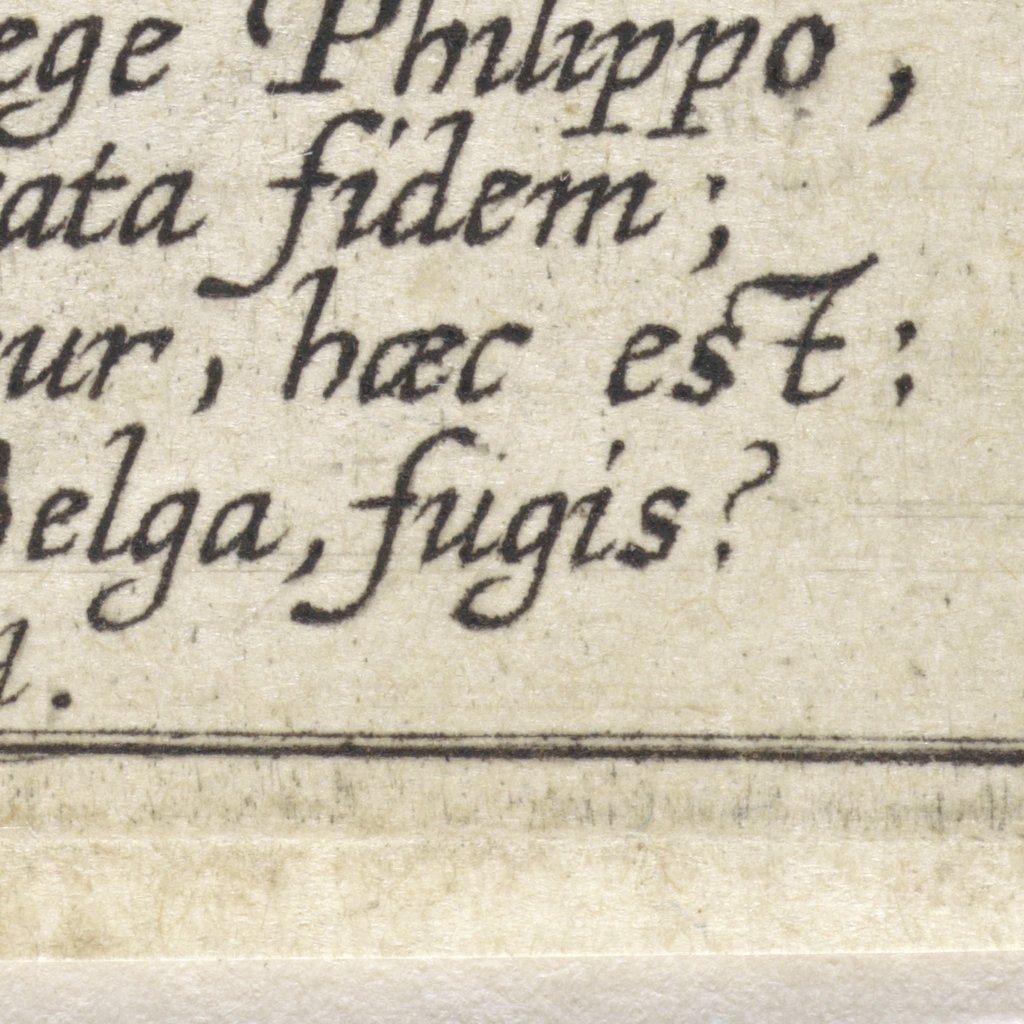 ege Philippo,
ata fidem;
ur, hæc est:
elga, fugis?